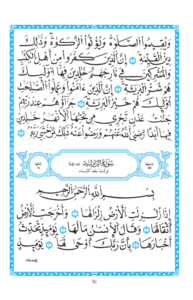 وَيُقِيمُوا۟ ٱلصَّلَوٰةَ وَيُؤْتُوا۟ ٱلزَّكَوٰةَ وَذَٰلِكَ
دِينُ ٱلْقَيِّمَةِ إِنَّ ٱلَّذِينَ كَفَرُوا۟ مِنْ أَهْلِ ٱلْكِتَٰبِ
وَٱلْمُشْرِكِينَ فِى نَارِ جَهَنَّمَ خَٰلِدِينَ فِيهَآ أُو۟لَٰٓئِكَ
هُمْ شَرُّ ٱلْبَرِيَّةِ إِنَّ ٱلَّذِينَ ءَامَنُوا۟ وَعَمِلُوا۟ ٱلصَّٰلِحَٰتِ
أُو۟لَٰٓئِكَ هُمْ خَيْرُ ٱلْبَرِيَّةِ جَزَآؤُهُمْ عِندَ رَبِّهِمْ
جَنَّٰتُ عَدْنٍ تَجْرِى مِن تَحْتِهَا ٱلْأَنْهَٰرُ خَٰلِدِينَ
فِيهَآ أَبَدًا رَّضِىَ ٱللَّهُ عَنْهُمْ وَرَضُوا۟ عَنْهُ ذَٰلِكَ لِمَنْ خَشِىَ رَبَّهُۥ
بِسْمِ ٱللَّهِ ٱلرَّحْمَٰنِ ٱلرَّحِيمِ
إِذَا زُلْزِلَتِ ٱلْأَرْضُ زِلْزَالَهَا وَأَخْرَجَتِ ٱلْأَرْضُ
أَثْقَالَهَا وَقَالَ ٱلْإِنسَٰنُ مَا لَهَا يَوْمَئِذٍ تُحَدِّثُ
أَخْبَارَهَا بِأَنَّ رَبَّكَ أَوْحَىٰ لَهَا يَوْمَئِذٍ